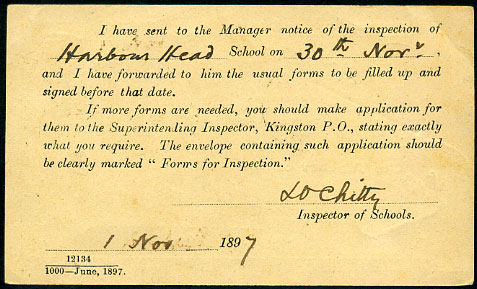 I have sent to the Manager notice of the inspection of
Harbour Head School on 30th Novr.
and I have forwarded to him the usual forms to be filled up and
signed before that date.
If more forms are needed, you should make application for
them to the Superintending Inspector, Kingston P.O., stating exactly
what you require. The envelope containing such application should
be clearly marked “ Forms for Inspection.”
LD Chitty
Inspector of Schools.
1 Nov 1897
12134
1000—June, 1897.